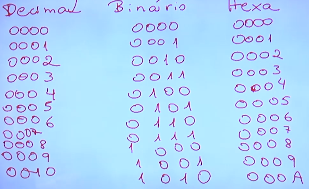 Decimal Binário Hexa
0000 0000 0000
0001 0001 0001
0002 0010 0002
0003 0011 0003
0004 0100 0004
0005 0101 0005
0006 0110 0006
0007 0111 0007
0008 1000 0008
0009 1001 0009
0010 1010 000A